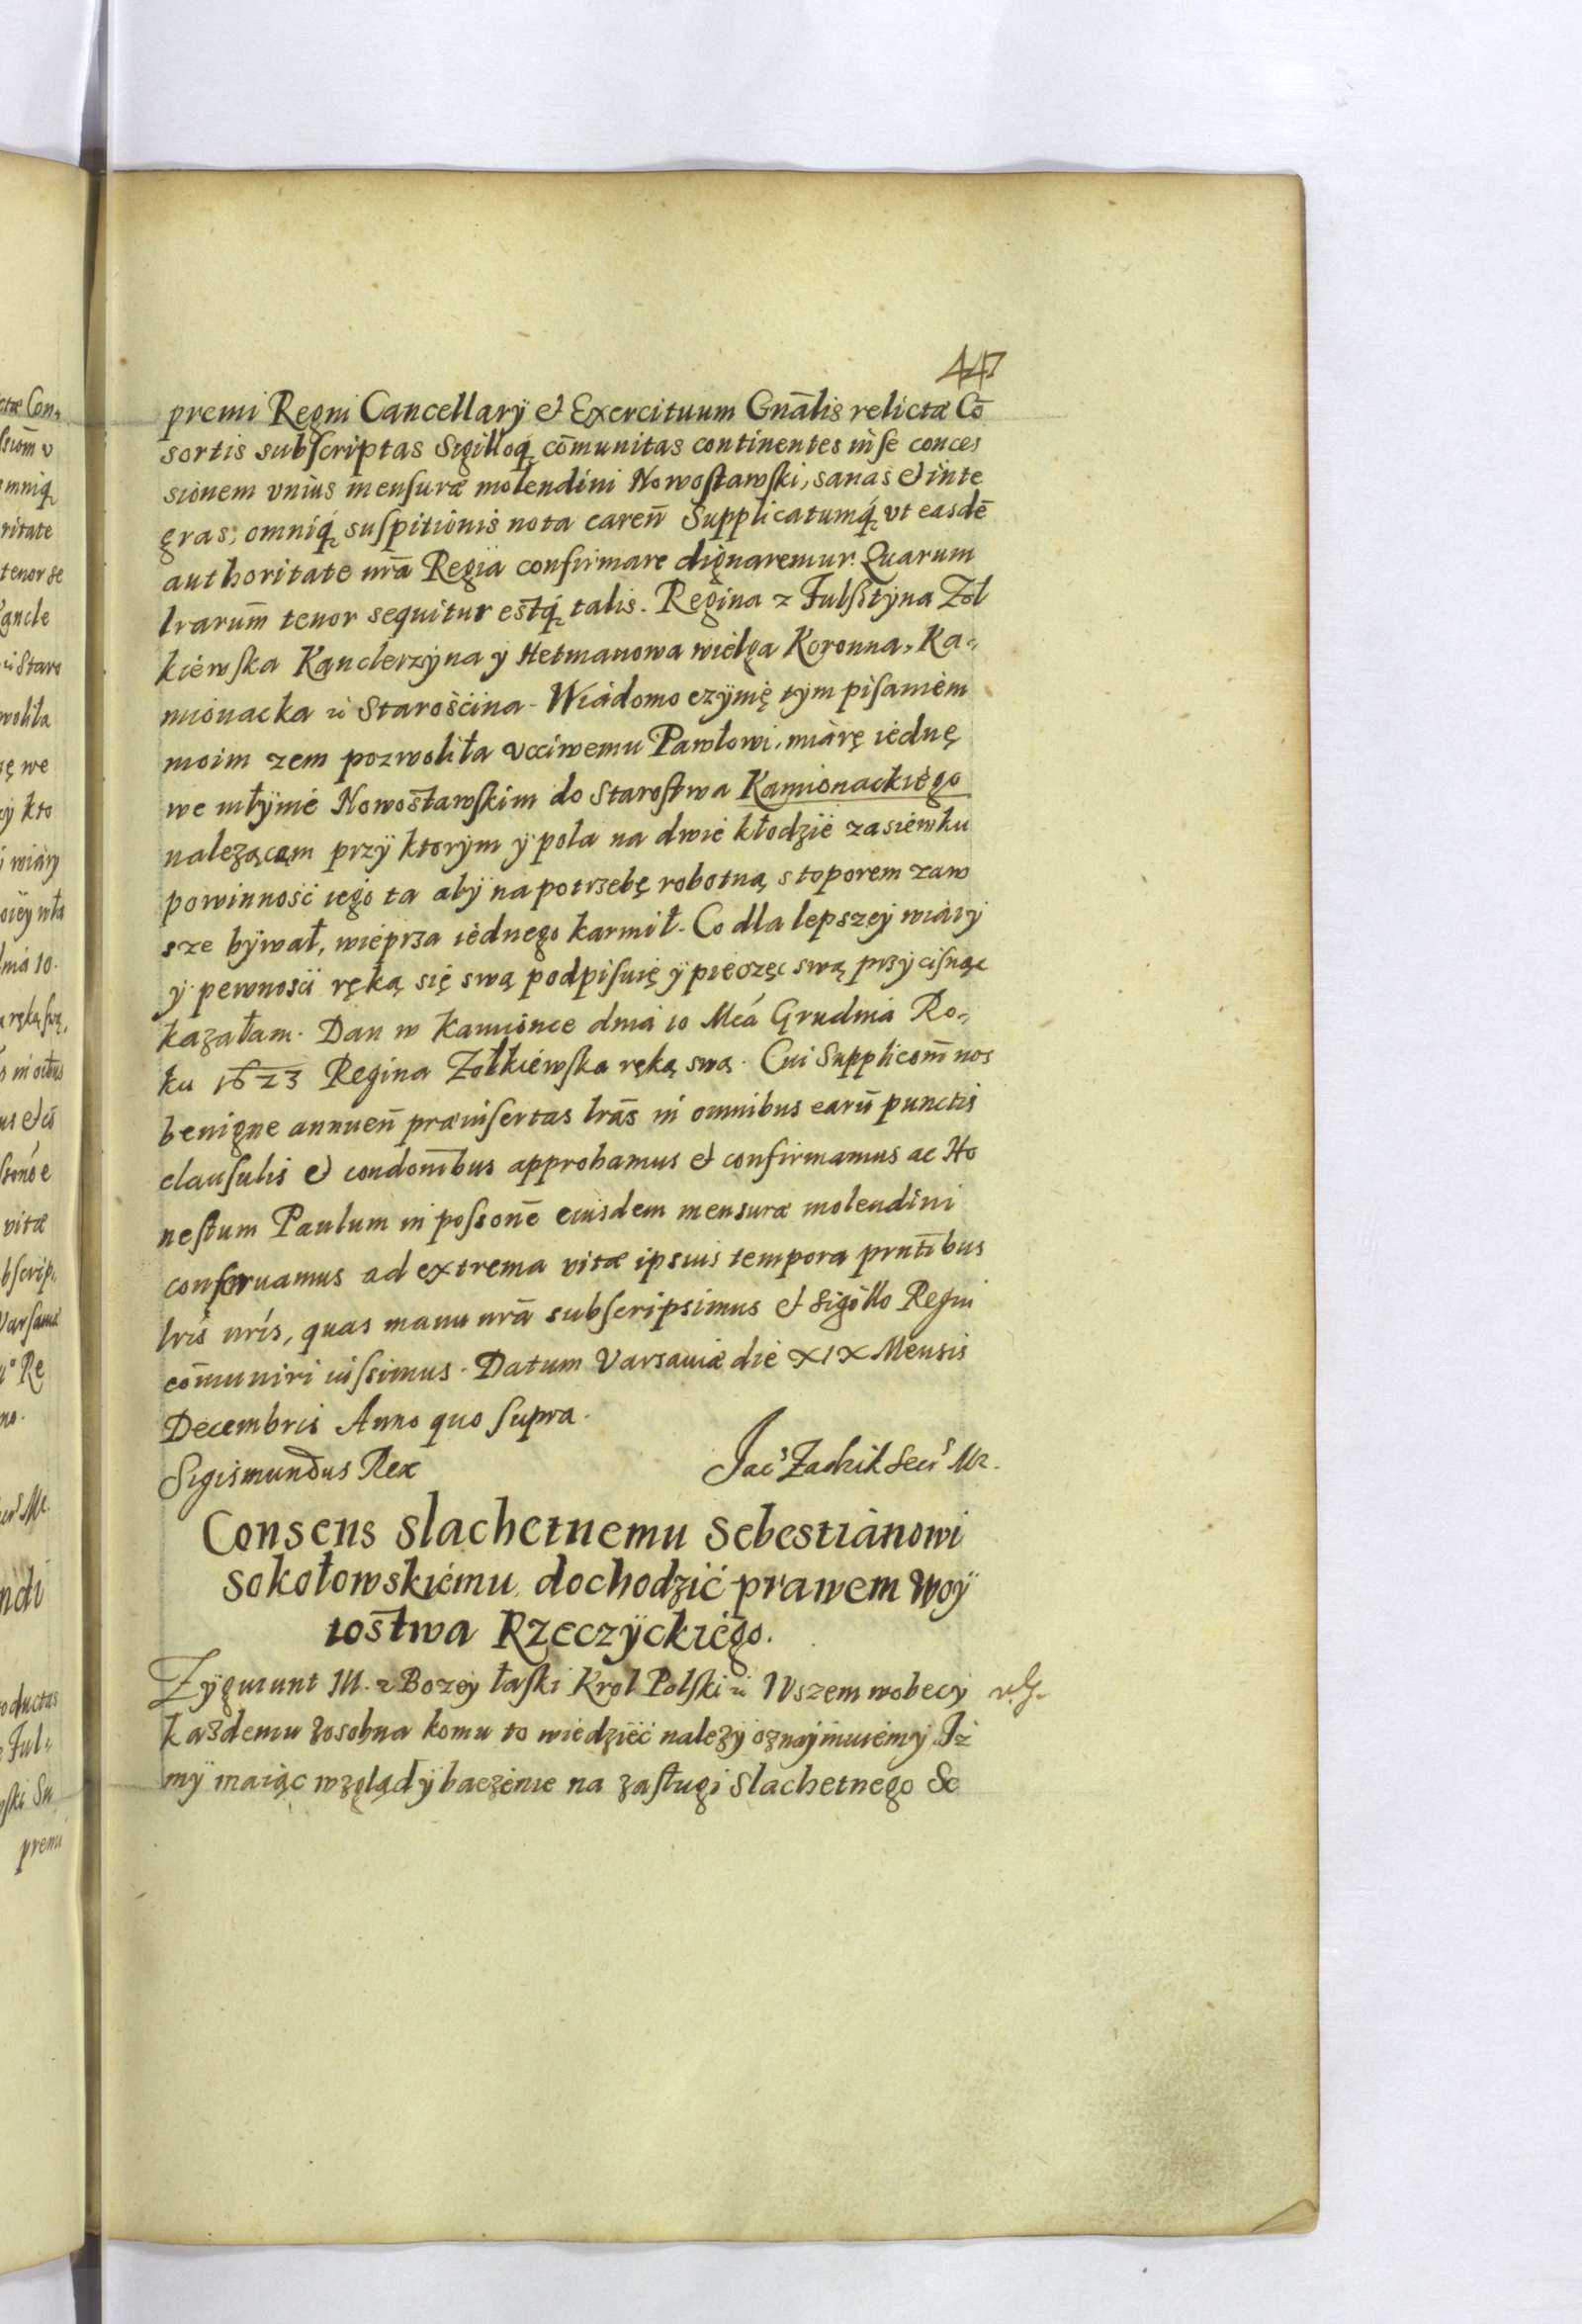 447
premi Regni Cancellarÿ et Exercituum Gnālis relictæ Cō
sortis subscriptas Sigilloq́ꝫ cōmunitas continentes in se conces
sionem vnius mensuræ molendini Nowostawski, sanas et inte
gras, omniq́ꝫ suspitionis nota caren̄ Supplicatumq́ꝫ vt easdē
authoritate nrā Regia confirmare dignaremur. Quarum
lrarum̄ tenor sequitur estq́ꝫ talis. Regina z Fulsstÿna Zol
kiewska Kanclerzÿna y Hetmanowa wielga Koronna, Ka=
mionacka ꝛc Starosćina. Wiadomo czÿnię tÿm pisaniem
moim zem pozwoliła vcciwemu Pawłowi, miarę iednę
we młÿnie Nowostawskim do Starostwa Kamionackiego
nalezącem przÿ ktorÿm ÿ pola na dwie kłodzie zasiewku
powinnosć iego ta abÿ na potrzebę robotną s toporem zaw
sze bÿwał, wieprza iednego karmił. Co dla lepszeÿ wiarÿ
ÿ pewnosci ręką się swą podpisuię ÿ pieczęc swą przÿcisnąc
kazałam. Dan w Kamionce dnia 10 Mcá Grudnia Ro=
ku 1623 Regina Zołkiewska ręką swą. Cui Supplicaom̄ nos
benigne annuen̄ præinsertas lrās in omnibus earū punctis
clausulis et condonibus approbamus et confirmamus ac Ho
nestum Paulum in possonē eiusdem mensuræ molendini
conseruamus ad extrema vitæ ipsius tempora prntībus
lris nris, quas manu nrā subscripsimus et Sigillo Regni
cōmuniri iussimus. Datum Varsauiæ die XIX Mensis
Decembris Anno quo supra.
Sigismundus Rex Jacs Zadzik Secrs Mr.
Consens slachetnemu Sebestianowi
Sokołowskiemu dochodzić prawem Woÿ
tostwa Rzeczÿckiego.
Zÿgmunt III. z Bozeÿ łaski Krol Polski ꝛc Wszem wobecÿ
kazdemu zosobna komu to wiedzieć nalezÿ oznaÿmuiemÿ Iż
mÿ maiąc wzgląd ÿ baczenie na zasługi Slachetnego Se